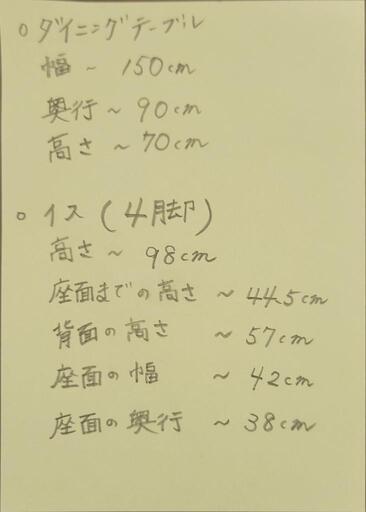 ○ ダイニングテーブル
幅 ～ 150cm
奥行 ～ 90cm
高さ ～ 70cm
○ イス (4脚)
高さ ～ 98cm
座面までの高さ ～ 44.5cm
背面の高さ ～ 57cm
座面の幅 ～ 42cm
座面の奥行 ～ 38cm